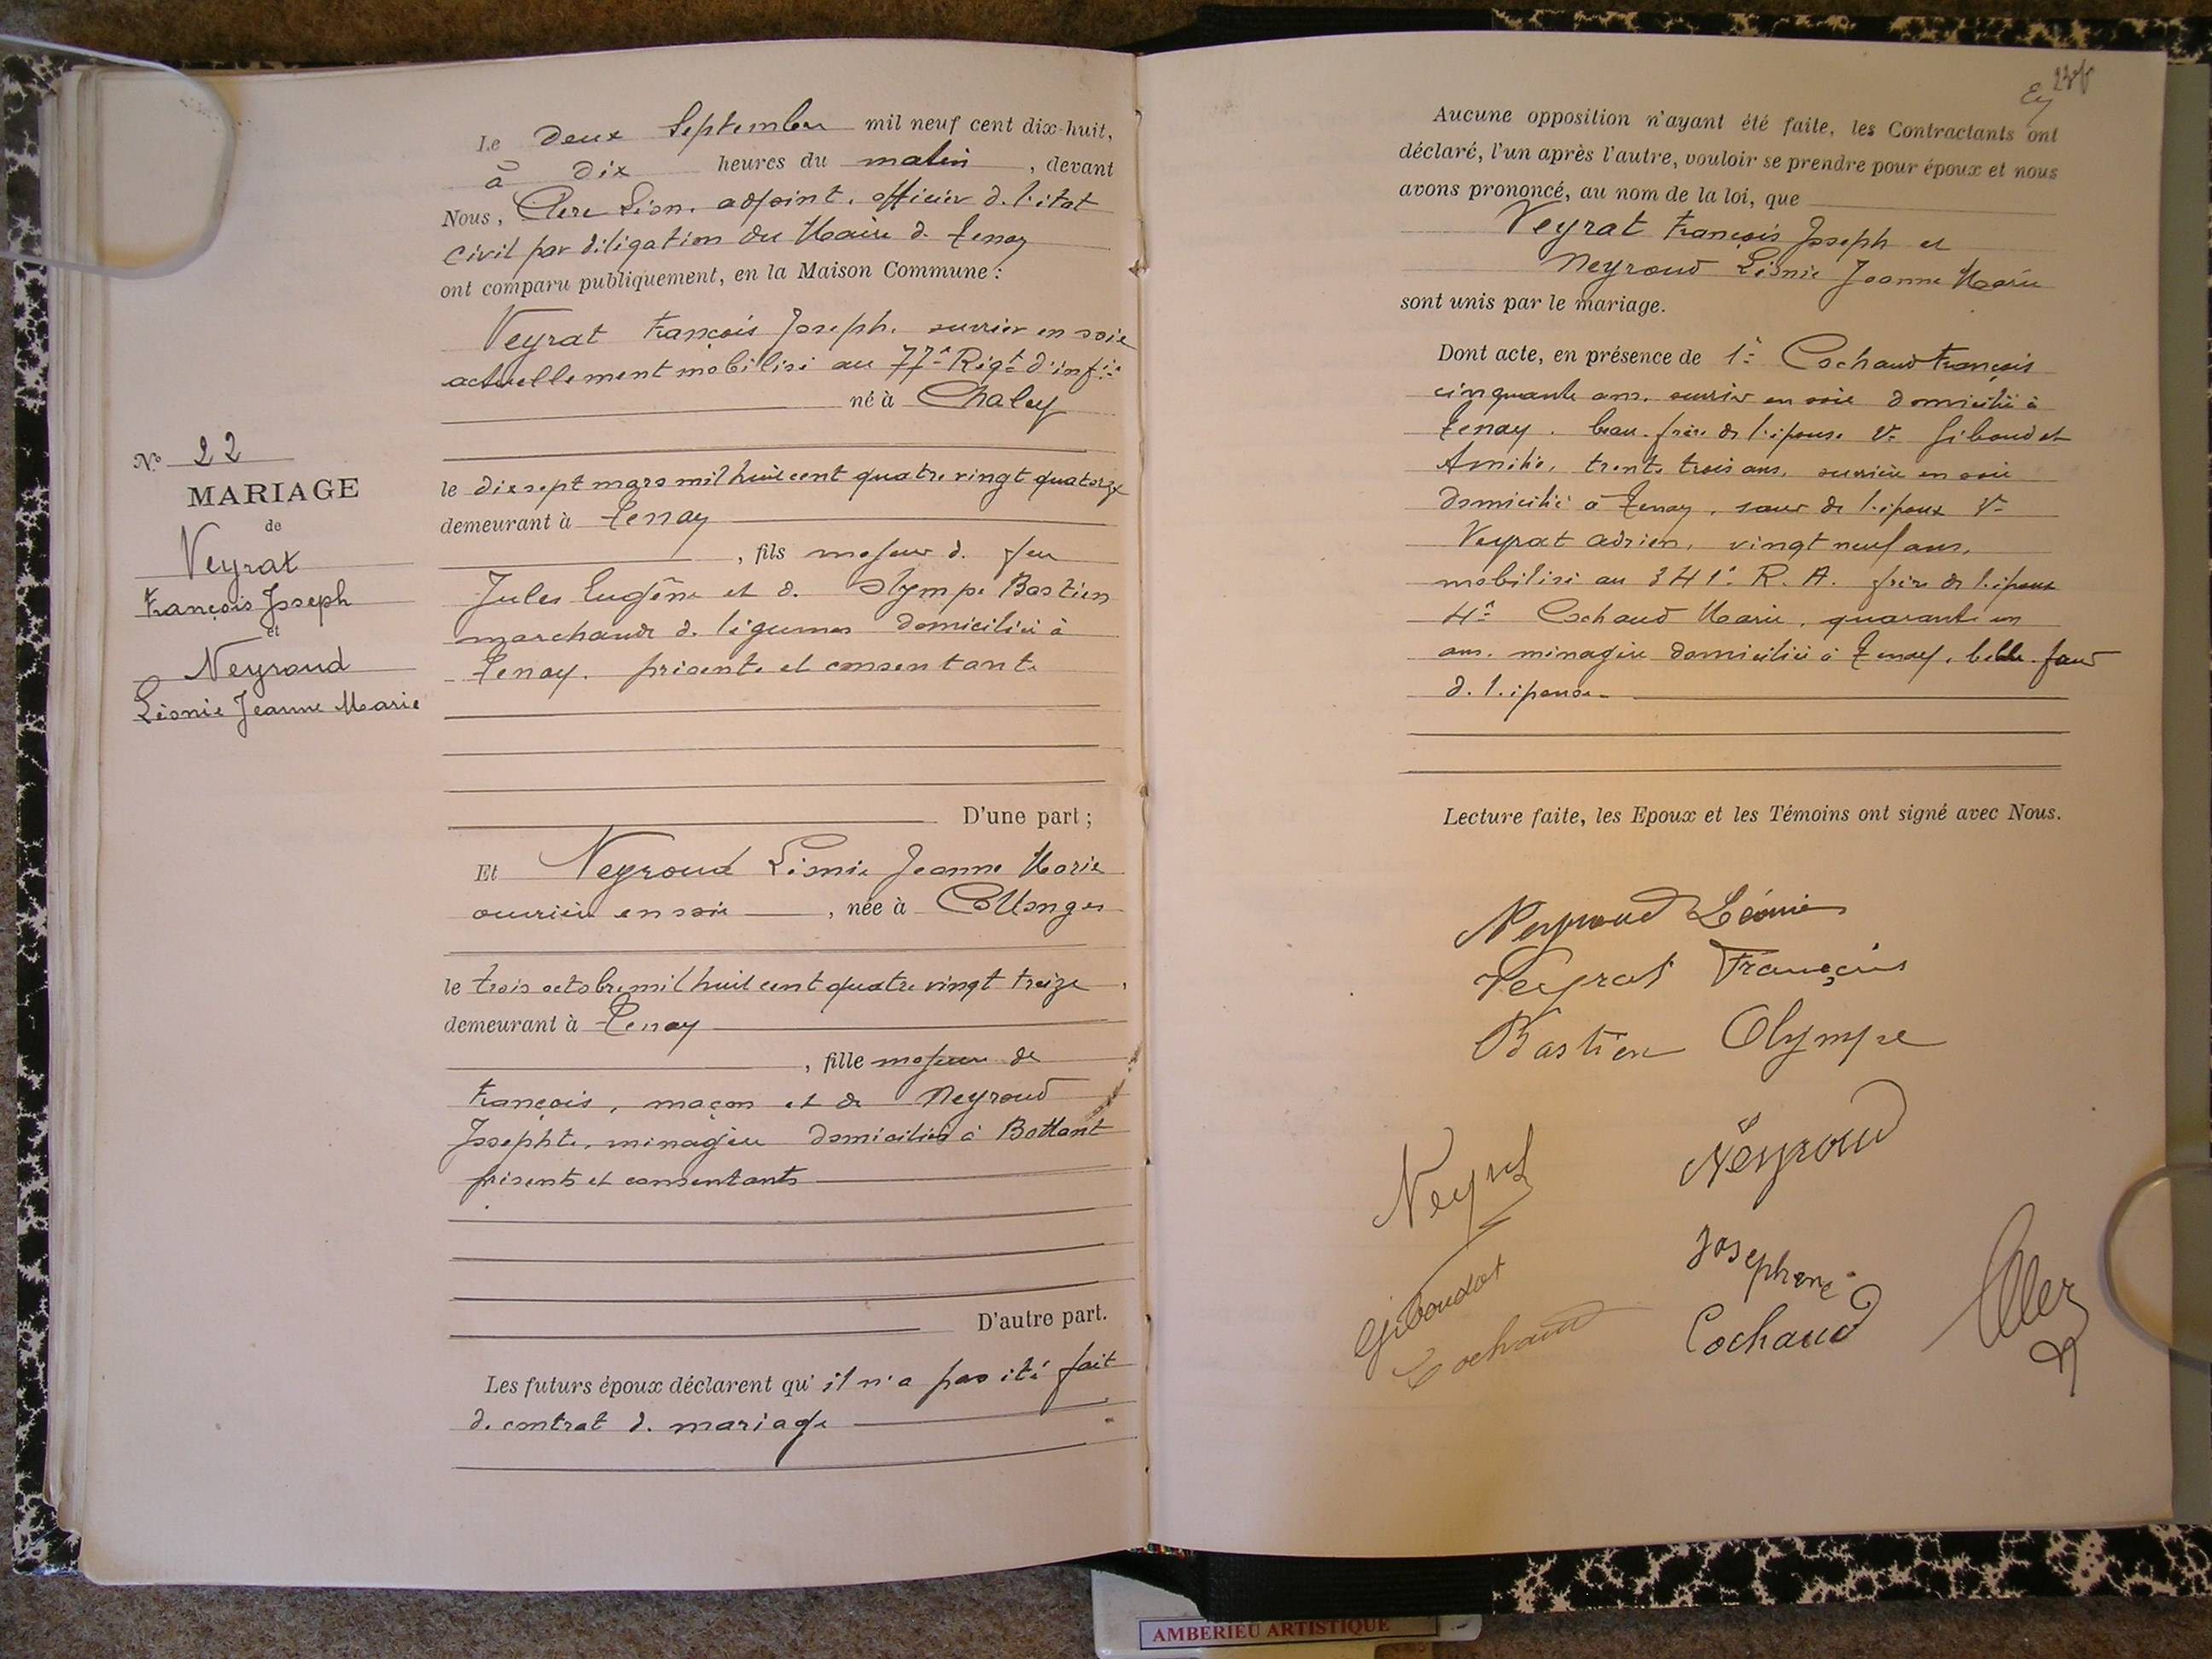 Le deux Septembre mil neuf cent dix-huit,
à dix heures du matin, devant
Nous, Clerc Léon, adjoint, officier de l'état
civil par délégation du Maire de Tenay
ont comparu publiquement, en la Maison Commune :
Veyrat François Joseph, ouvrier en soie
actuellement mobilisé au 77e Régt d'inf ie
né à Chaley
le dix sept mars mil huit cent quatre vingt quatorze
demeurant à Tenay
, fils majeur de feu
Jules Eugène et de Olympe Bastien
marchande de légumes domiciliée à
Tenay, présente et consentante
Nº 22
MARIAGE
de
Veyrat
François Joseph
et
Neyroud
Léonie Jeanne Marie
D'une part ;
Et Neyroud Léonie Jeanne Marie
ouvrière en soie, née à Collonges
le trois octobre mil huit cent quatre vingt treize,
demeurant à Tenay
, fille majeure de
François, maçon et de Neyroud
Josephte, ménagère domiciliés à
présents et consentants
D'autre part.
Les futurs époux déclarent qu'il n'a pas été fait
de contrat de mariage
Aucune opposition n'ayant été faite, les Contractants ont
déclaré, l'un après l'autre, vouloir se prendre pour époux et nous
avons prononcé, au nom de la loi, que
Veyrat François Joseph et
Neyroud Léonie Jeanne Marie
sont unis par le mariage.
Dont acte, en présence de 1e Cochaud François
cinquante ans, ouvrier en soie domicilié à
Tenay, beau-frère de l'épouse Giboudet
Amélie, trente trois ans, ouvrière en soie
domiciliée à Tenay, sœur de l'époux
Veyrat Adrien, vingt neuf ans,
mobilisé au 341e R. A. frère de l'époux
4e Cochaud Marie, quarante un
ans, ménagère domiciliée à Tenay, belle-sœur
de l'épouse
Lecture faite, les Epoux et les Témoins ont signé avec Nous.
Neyroud Léonie
Veyrat François
Bastien Olympe
Neyroud
Giboudet
Cochaud
Josephine
Cochaud
Clerc
AMBERIEU ARTISTIQUE